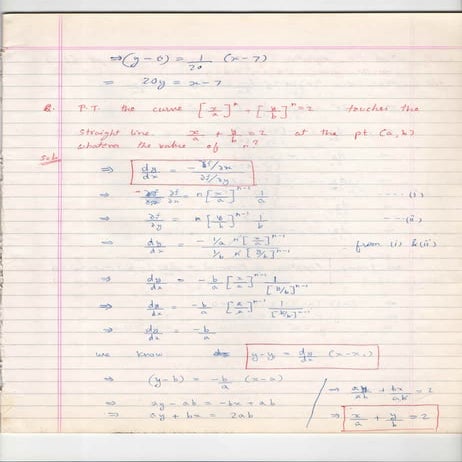 ⇒ (y - 0) = 1/20 (x - 7)
= 20y = x - 7
Q. P.T. the curve [x/a]^n + [y/b]^n = 2 touches the
straight line x/a + y/b = 2 at the pt (a, b)
whatever the value of 'n'?
Sol.
⇒ dy/dx = - ∂f/∂x / ∂f/∂y
⇒ ∂f/∂x = n [x/a]^n-1 1/a ---- (i)
⇒ ∂f/∂y = n [y/b]^n-1 1/b ---- (ii)
⇒ dy/dx = - 1/a n [x/a]^n-1 / 1/b n [y/b]^n-1 from (i) & (ii)
⇒ dy/dx = - b/a [x/a]^n-1 1/[y/b]^n-1
⇒ dy/dx = - b/a [a/a]^n-1 1/[b/b]^n-1
⇒ dy/dx = - b/a
we know y - y₁ = dy/dx (x - x₁)
⇒ (y - b) = - b/a (x - a)
⇒ ay - ab = - bx + ab
⇒ ay + bx = 2ab
⇒ ay/ab + bx/ab = 2
⇒ x/a + y/b = 2